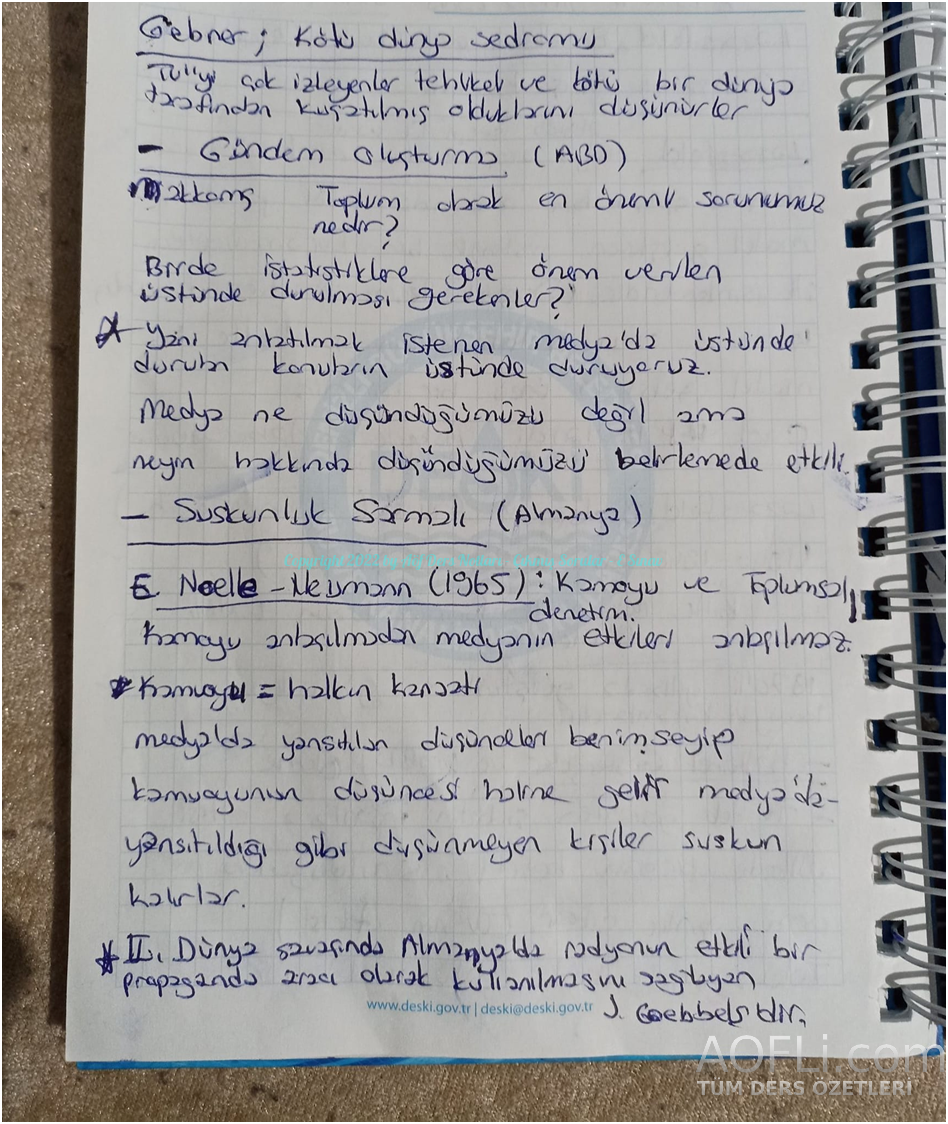 Gebner; Kötü dünya sedromu
Tv'yi çok izleyenler tehlikel ve kötü bir dünya
tarafından kuşatılmış olduklarını düşünürler
- Gündem oluşturma (ABD)
Makkoms Toplum olarak en önemli sorunumuz
nedir?
Birde istatistiklere göre önem verilen
üstünde durulması gerekenler?
Yani anlatılmak istenen medya'da üstünde
durulan konuların üstünde duruyoruz.
Medya ne düşündüğümüzü değil ama
neyin hakkında düşündüğümüzü belirlemede etkili.
- Suskunluk Sarmalı (Almanya)
E. Noelle-Neumann (1965): Kamoyu ve Toplumsal
denetim.
Kamoyu anlaşılmadan medyanın etkileri anlaşılmaz.
* Kamuoyu = halkın kanaati
medya'da yansıtılan düşünceleri benimseyip
kamuoyunun düşüncesi haline gelir medya'da-
yansıtıldığı gibi düşünmeyen kişiler suskun
kalırlar.
* II. Dünya savaşında Almanya'da radyonun etkili bir
propaganda aracı olarak kullanılmasını sağlayan
J. Goebbels'dir.
www.deski.gov.tr | deski@deski.gov.tr
AOFLi.com
TÜM DERS ÖZETLERİ